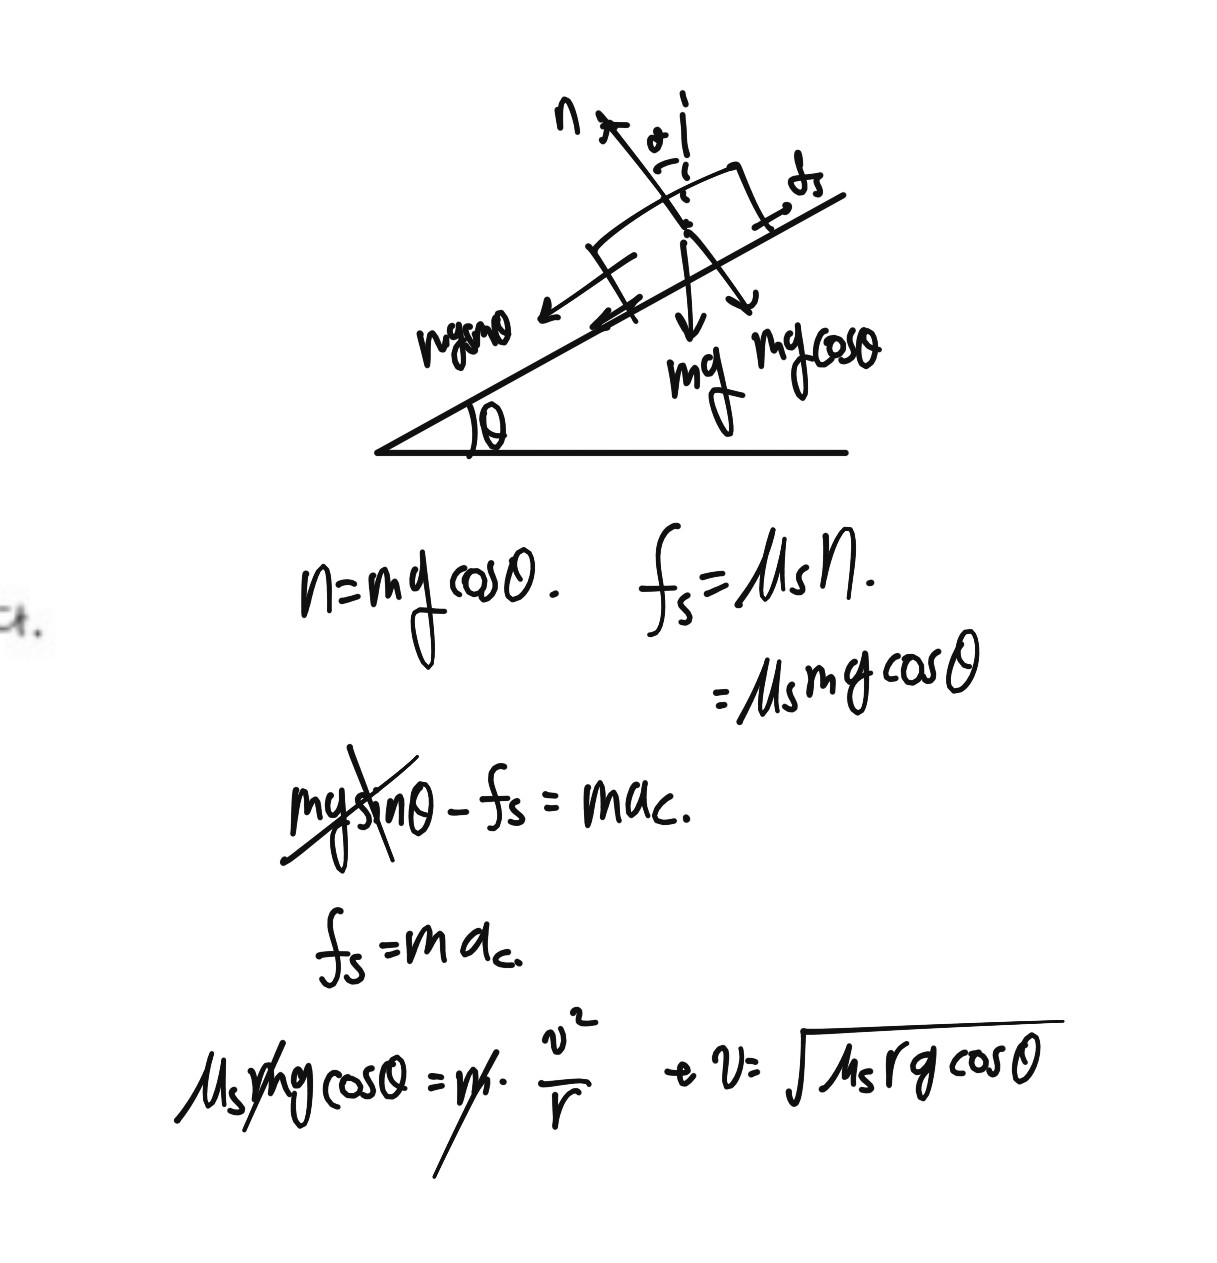 n
θ
fs
mg sinθ
mg
mg cosθ
θ
n = mg cosθ. fs = μs n.
= μs mg cosθ
mg sinθ - fs = mac.
fs = mac.
μs mg cosθ = m · v²/r → v = √(μs r g cosθ)